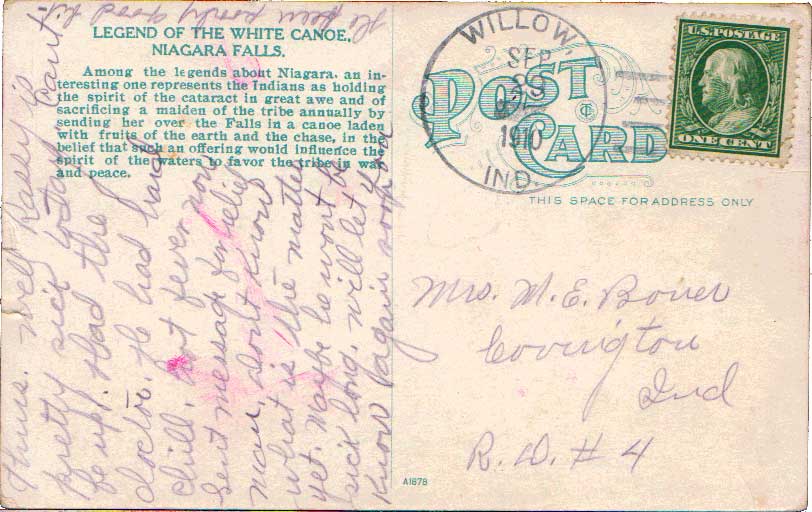 LEGEND OF THE WHITE CANOE,
NIAGARA FALLS.
Among the legends about Niagara, an in-
teresting one represents the Indians as holding
the spirit of the cataract in great awe and of
sacrificing a maiden of the tribe annually by
sending her over the Falls in a canoe laden
with fruits of the earth and the chase, in the
belief that such an offering would influence the
spirit of the waters to favor the tribe in war
and peace.
Thurs. Well Kasey is
pretty sick today cant
be up. Had the
doctor. He had hard
chill, hot fever now
sent message for relief
man, dont know
what is the matter
yet. Maybe he wont be
sick long. will let you
know again soon
He been poorly good bit
WILLOW
SEP
29
1910
IND.
POST
CARD
THIS SPACE FOR ADDRESS ONLY
U.S. POSTAGE
ONE CENT
Mrs. M. E. Boner
Covington
Ind
R. D. # 4
A1678